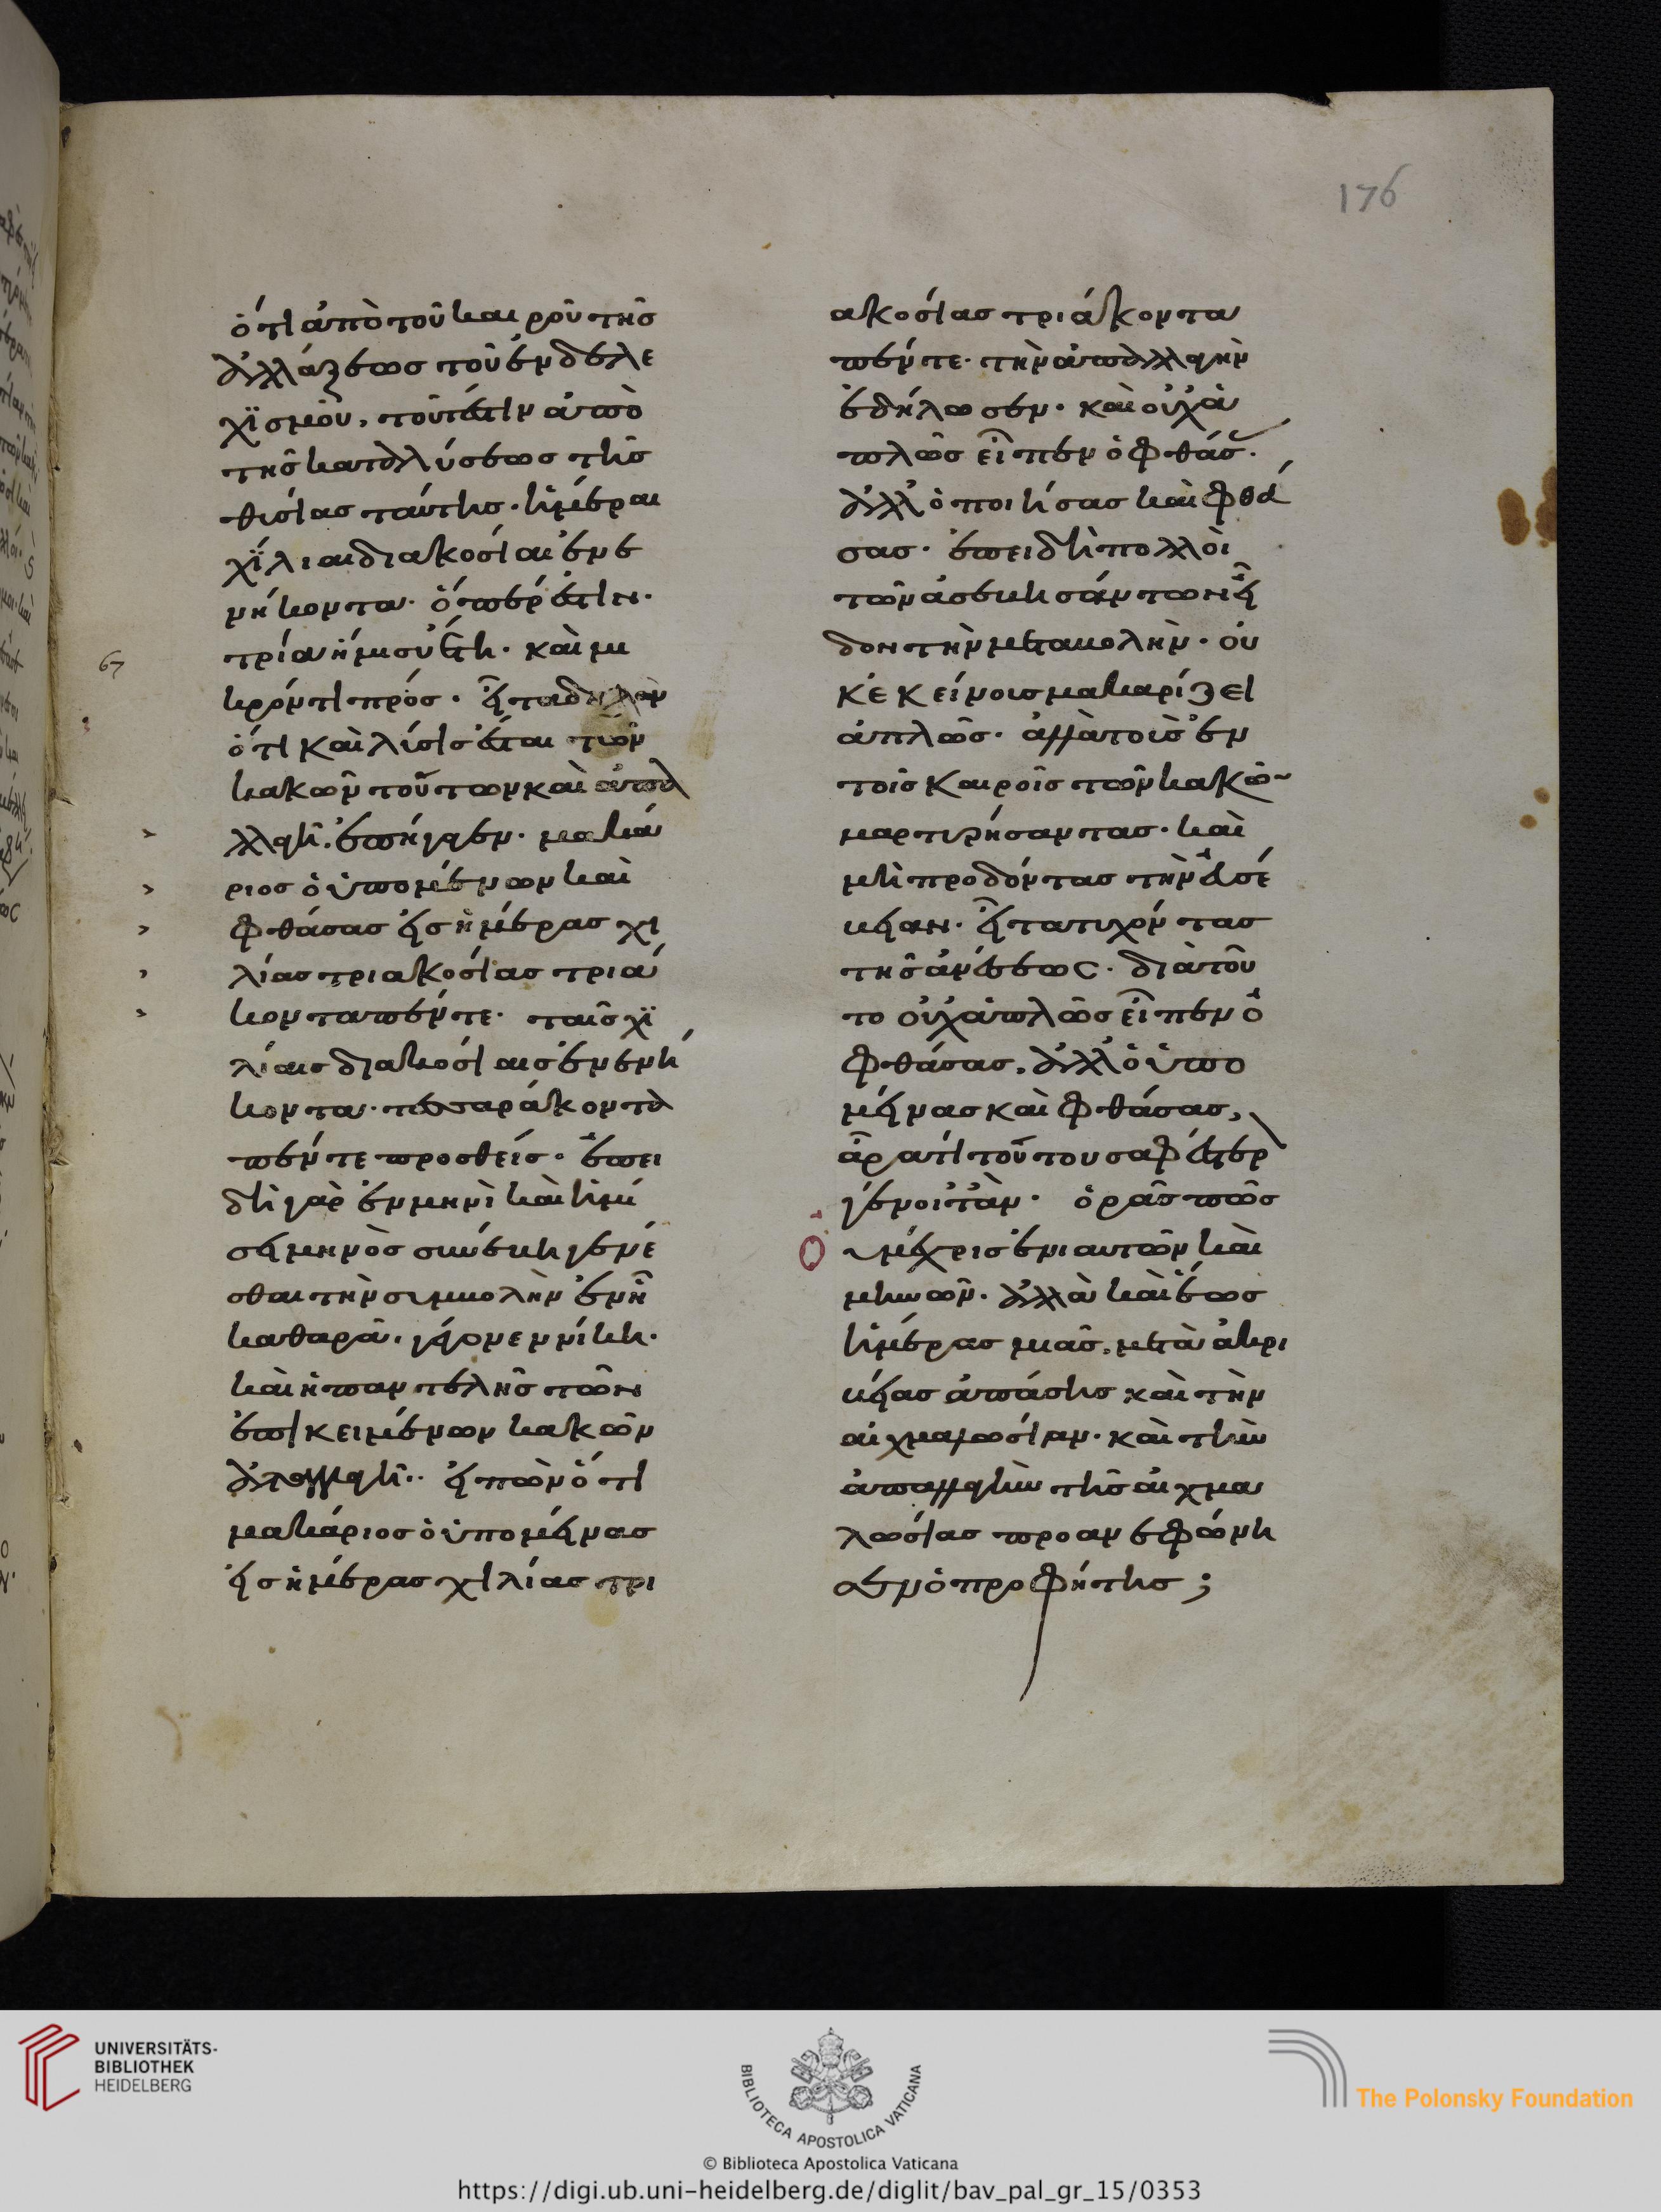 176
ὅτι ἀπὸ τοῦ καιροῦ τῆς
ἀλλάξεως τοῦ ἐνδελε
χϊσμοῦ, τοῦτέστιν ἀπὸ
τῆς καταλύσεως τῆς
θυσίας ταύτης· ἡμέραι
χΐλιαι διακοσίαι ἐνε
νήκοντα· ὅπερ ἐστὶν·
τρία ἥμισυ ἔτη· καὶ μι
67
κρόν τι πρός· εἶτα δηλῶν
ὅτι καὶ λύσις ἔσται τῶν
κακῶν τούτων καὶ ἀπαλ
λαγὴ· ἐπήγαγεν· μακά
ριος ὁ ὑπομένων καὶ
φθάσας εἰς ἡμέρας χι
λίας τριακοσίας τριά
κοντα πέντε· ταῖς χϊ
λίαις διακοσίαις ἐνενή
κοντα· τεσσαράκοντα
πέντε προσθείς· ἐπει
δὴ γὰρ ἐν μηνὶ καὶ ἡμί
σει μηνὸς συνέβη γενέ
σθαι τὴν συμβολὴν ἐν ἧ
καθαρὰ γέγονε νίκη·
καὶ ἡ παντελὴς τῶν
ἐπικειμένων κακῶν
ἀπαλλαγὴ·· εἰπὼν ὅτι
μακάριος ὁ ὑπομείνας
εἰς ἡμέρας χιλίας τρι
ακοσίας τριάκοντα
πέντε· τὴν ἀπαλλαγὴν
ἐδήλωσεν· καὶ οὐχ ἁ
πλῶς εἶπεν ὁ φθάς·
ἀλλ' ὁ ποιήσας καὶ φθά
σας· ἐπειδὴ πολλοὶ
τῶν ἀσεβησάντων εἶ
δον τὴν μεταβολὴν· οὐ
κ ἐκείνοις μακαρίζει
ἁπλῶς· ἀλλὰ τοὺς ἐν
τοῖς καιροῖς τῶν κακῶ
μαρτυρήσαντας· καὶ
μὴ προδόντας τὴν εὐσέ
βειαν· εἶτα τυχόντας
τῆς ἀνέσεως· διὰ τοῦ
το οὐχ ἁπλῶς εἶπεν ὁ
φθάσας, ἀλλ' ὁ ὑπο
μείνας καὶ φθάσας,
ἆρα τί τούτου σαφέστερ
γένοιτ' ἄν· ὁρᾶς πῶς
Ο μέχρις ἐνιαυτῶν καὶ
μηνῶν· ἀλλὰ καὶ ἕως
ἡμέρας μιᾶς, μετὰ ἀκρι
βείας ἁπάσης καὶ τὴν
αἰχμαλωσίαν· καὶ τὴν
ἀπαλλαγὴν τῆς αἰχμα
λωσίας προανεφώνη
σεν ὁ προφήτης;
UNIVERSITÄTS-
BIBLIOTHEK
HEIDELBERG
BIBLIOTECA APOSTOLICA VATICANA
© Biblioteca Apostolica Vaticana
The Polonsky Foundation
https://digi.ub.uni-heidelberg.de/diglit/bav_pal_gr_15/0353